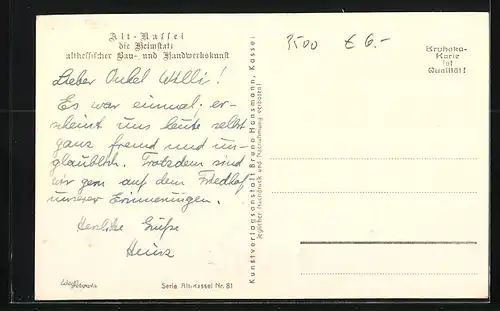 Alt-Kassel
die Heimstatt
althessischer Bau- und Handwerkskunst
Lieber Onkel Willi!
Es war einmal; er-
scheint uns heute selbst
ganz fremd und un-
glaublich. Trotzdem sind
wir gern auf dem Friedhof
unserer Erinnerungen.
Herzliche Grüße
Heinz
Serie Alt-Kassel Nr. 81
Kunstverlagsanstalt Bruno Hansmann, Kassel
Jeglicher Nachdruck und Nachahmung verboten!
3500 € 6.-
Bruhaka-
Karte
ist
Qualität!